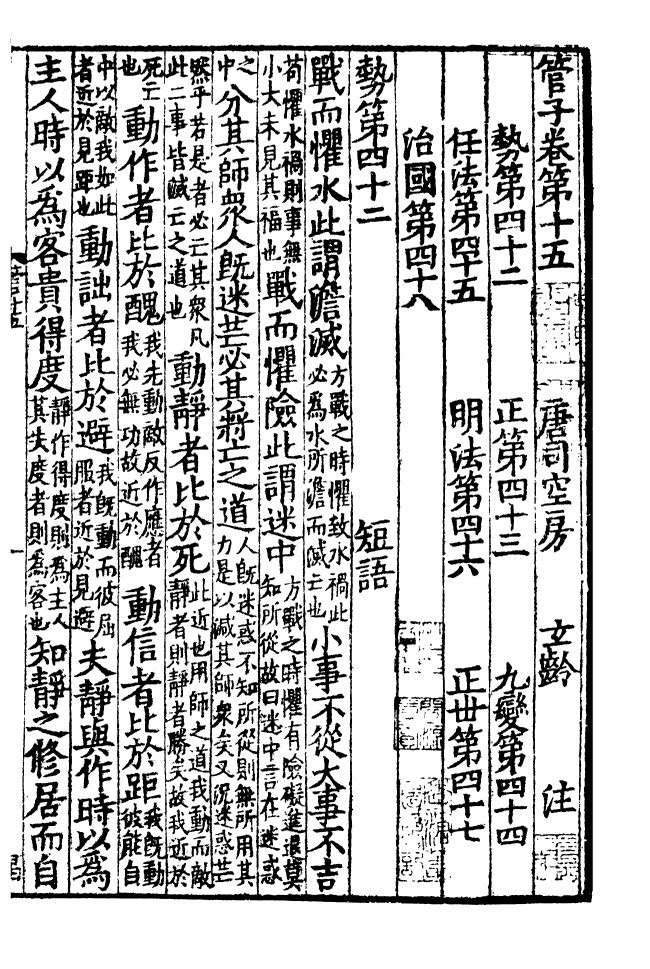 管子卷第十五 唐司空房 玄齡 注
勢第四十二 正第四十三 九變第四十四
任法第四十五 明法第四十六 正丗第四十七
治國第四十八
勢第四十二 短語
戰而懼水此謂澹滅 方戰之時懼致水禍此必為水所澹而滅亡也 小事不從大事不吉
苟懼水禍則事無小大未見其福也 戰而懼險此謂迷中 方戰之時懼有險礙進退莫知所從故曰迷中言在迷惑
之中 分其師眾人旣迷芒必其將亡之道 人旣迷惑不知所從則無所用其力是以減其師衆矣又況迷惑芒
然乎若是者必亡其衆凡此二事皆滅亡之道也 動靜者比於死 此近也用師之道我動而敵靜者則靜者勝矣故我近於
死亡也 動作者比於醜 我先動敵反作應者我必無功故近於醜 動信者比於距 我旣動彼能自
申以敵我如此者近於見距也 動詘者比於避 我旣動而彼屈服者近於見避 夫靜與作時以為
主人時以為客貴得度 靜作得度則為主人其失度者則為客也 知靜之修居而自